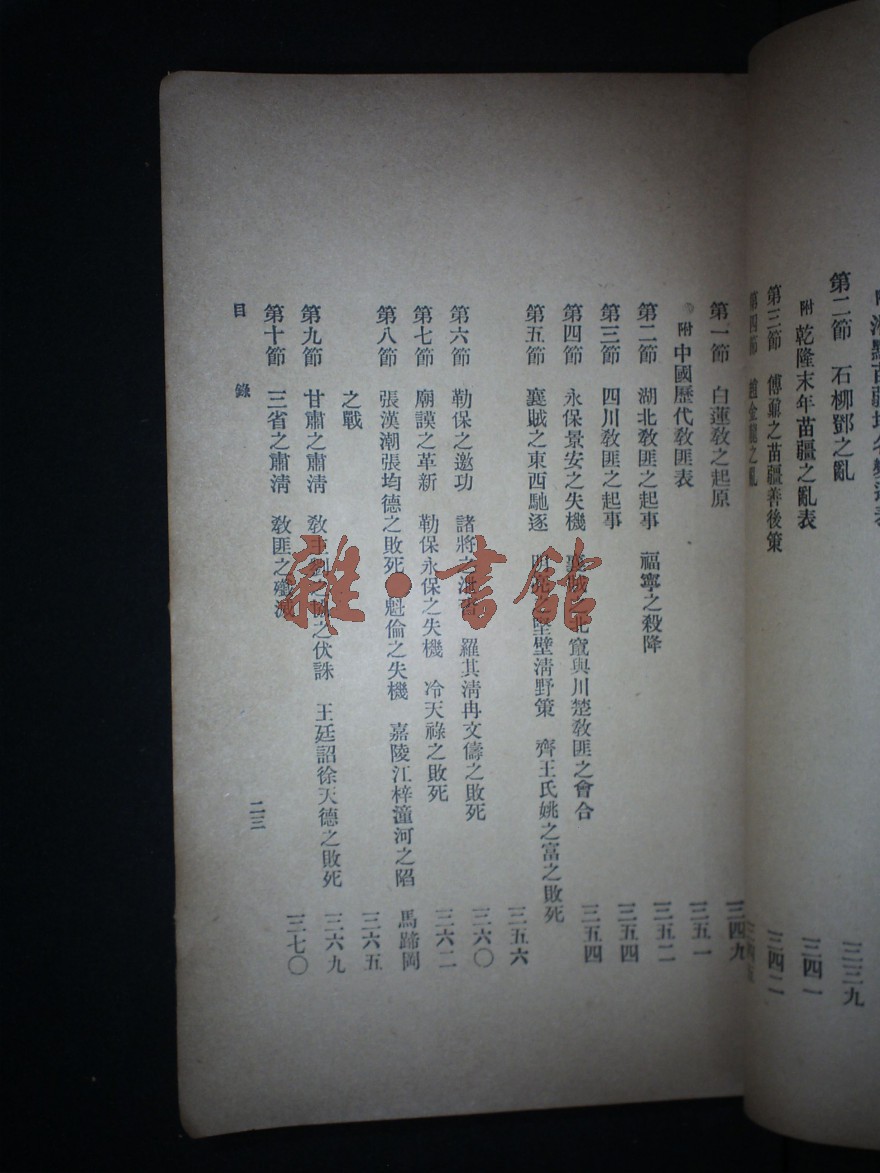 第二節 石柳鄧之亂 三三九
附 乾隆末年苗疆之亂表 三四一
第三節 傅鼐之苗疆善後策 三四二
第四節 趙金龍之亂
第一節 白蓮教之起原 三四九
附 中國歷代教匪表 三五一
第二節 湖北教匪之起事 福寧之殺降 三五二
第三節 四川教匪之起事 三五四
第四節 永保景安之失機 襄賊之北竄與川楚教匪之會合 三五四
第五節 襄賊之東西馳逐 明亮之堅壁清野策 齊王氏姚之富之敗死 三五六
第六節 勒保之邀功 諸將之 羅其清冉文儔之敗死 三六〇
第七節 廟謨之革新 勒保永保之失機 冷天祿之敗死 三六二
第八節 張漢潮張均德之敗死 魁倫之失機 嘉陵江梓潼河之陷 馬蹄岡
之戰 三六五
第九節 甘肅之肅清 教主劉之協之伏誅 王廷詔徐天德之敗死 三六九
第十節 三省之肅清 教匪之殲滅 三七〇
目錄 二三
雜·書館